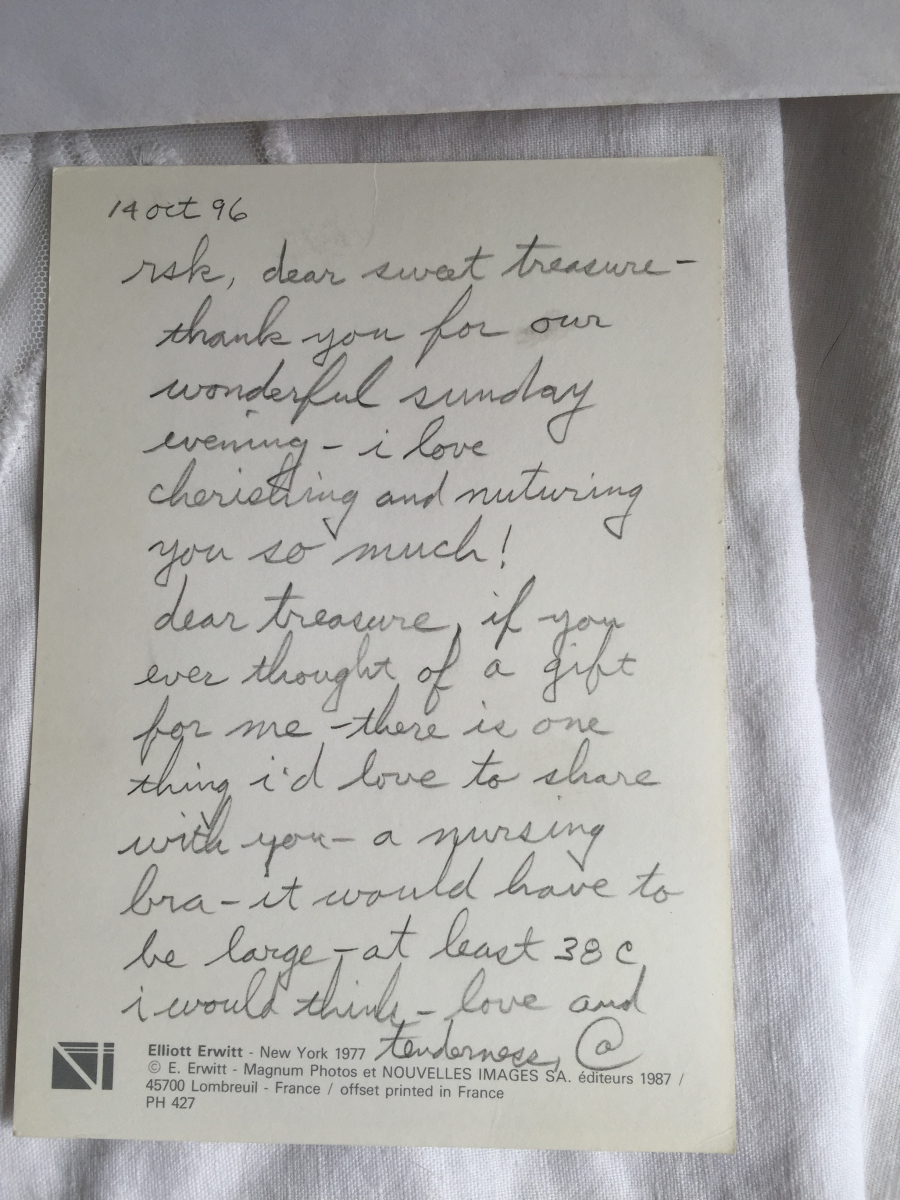 14 oct 96
rsk, dear sweet treasure-
thank you for our
wonderful sunday
evening - i love
cherishing and nuturing
you so much!
dear treasure, if you
ever thought of a gift
for me - there is one
thing i'd love to share
with you - a nursing
bra - it would have to
be large - at least 38 c
i would think - love and
tenderness, @
Elliott Erwitt - New York 1977
© E. Erwitt - Magnum Photos et NOUVELLES IMAGES SA. éditeurs 1987 /
45700 Lombreuil - France / offset printed in France
PH 427